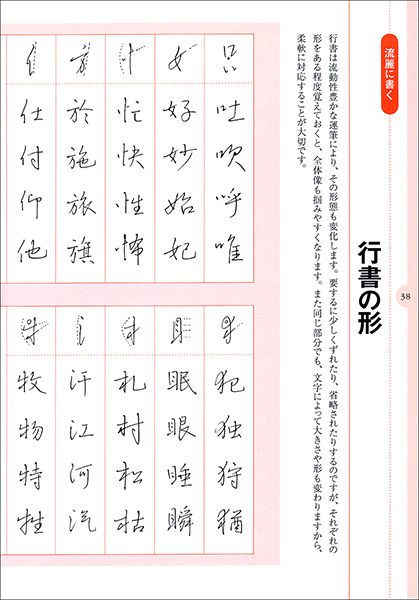 流麗に書く
38
行書の形
行書は流動性豊かな運筆により、その形態も変化します。要するに少しくずれたり、省略されたりするのですが、それぞれの
形をある程度覚えておくと、全体像も掴みやすくなります。また同じ部分でも、文字によって大きさや形も変わりますから、
柔軟に対応することが大切です。
吐吹呼唯
女好妙始妃
忄忙快性怖
方於施旅旗
亻仕付仰他
犭犯独狩猶
目眠眼睡瞬
木札村松枯
氵汗江河汽
牜牧物特牲